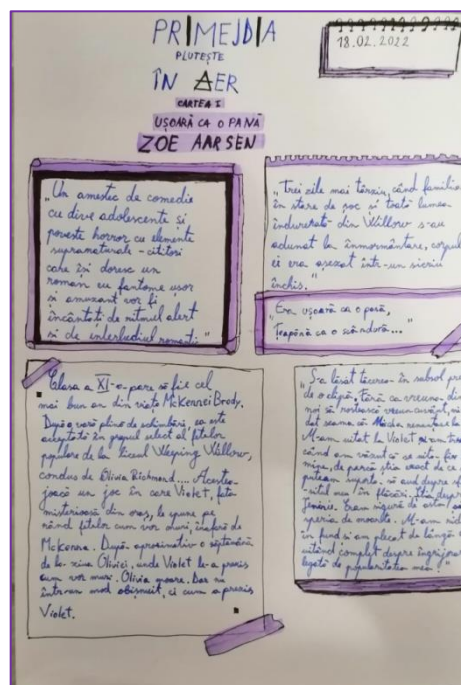 PRIMEJDIA
PLUTEȘTE
ÎN AER
CARTEA I
UȘOARĂ CA O PANĂ
ZOE AARSEN
18.02.2022
„Un amestec de comedie
cu dive adolescente și
poveste horror cu elemente
supranaturale - cititori
care își doresc un
roman cu fantome ușor
și amuzant vor fi
încântați de ritmul alert
și de interludiul romantic."
„Trei zile mai târziu, când familia
în stare de șoc și toată lumea
îndurerată din Willow s-au
adunat la înmormântare, corpul
ei era așezat într-un sicriu
închis."
„Era ușoară ca o pană,
Țeapănă ca o scândură..."
Clasa a XI-a pare să fie cel
mai bun an din viața McKennei Brody.
După o vară plină de schimbări, ea este
acceptată în grupul select al fetelor
populare de la liceul Weeping Willow,
condus de Olivia Richmond.... Acestea
joacă un joc în care Violet, fata
misterioasă din oraș, le spune pe
rând fetelor cum vor muri, în afară de
McKenna. După aproximativ o săptămână
de la ziua Oliviei, unde Violet le-a prezis
cum vor muri, Olivia moare. Dar nu
într-un mod obișnuit, ci cum a prezis
Violet.
„S-a lăsat tăcerea în subsol
de o clipă, fără ca vreuna din
noi să rostească vreun cuvânt,
dat seama că Mischa
M-am uitat la Violet
când am văzut că se uita fix
mine, de parcă știa exact de ce
puteam suporta să aud despre
în flăcări. Știa despre
Jennie. Eram sigură de asta!
speria de moarte. M-am
în fund și am plecat de lângă
uitând complet despre
legată de popularitatea mea!"